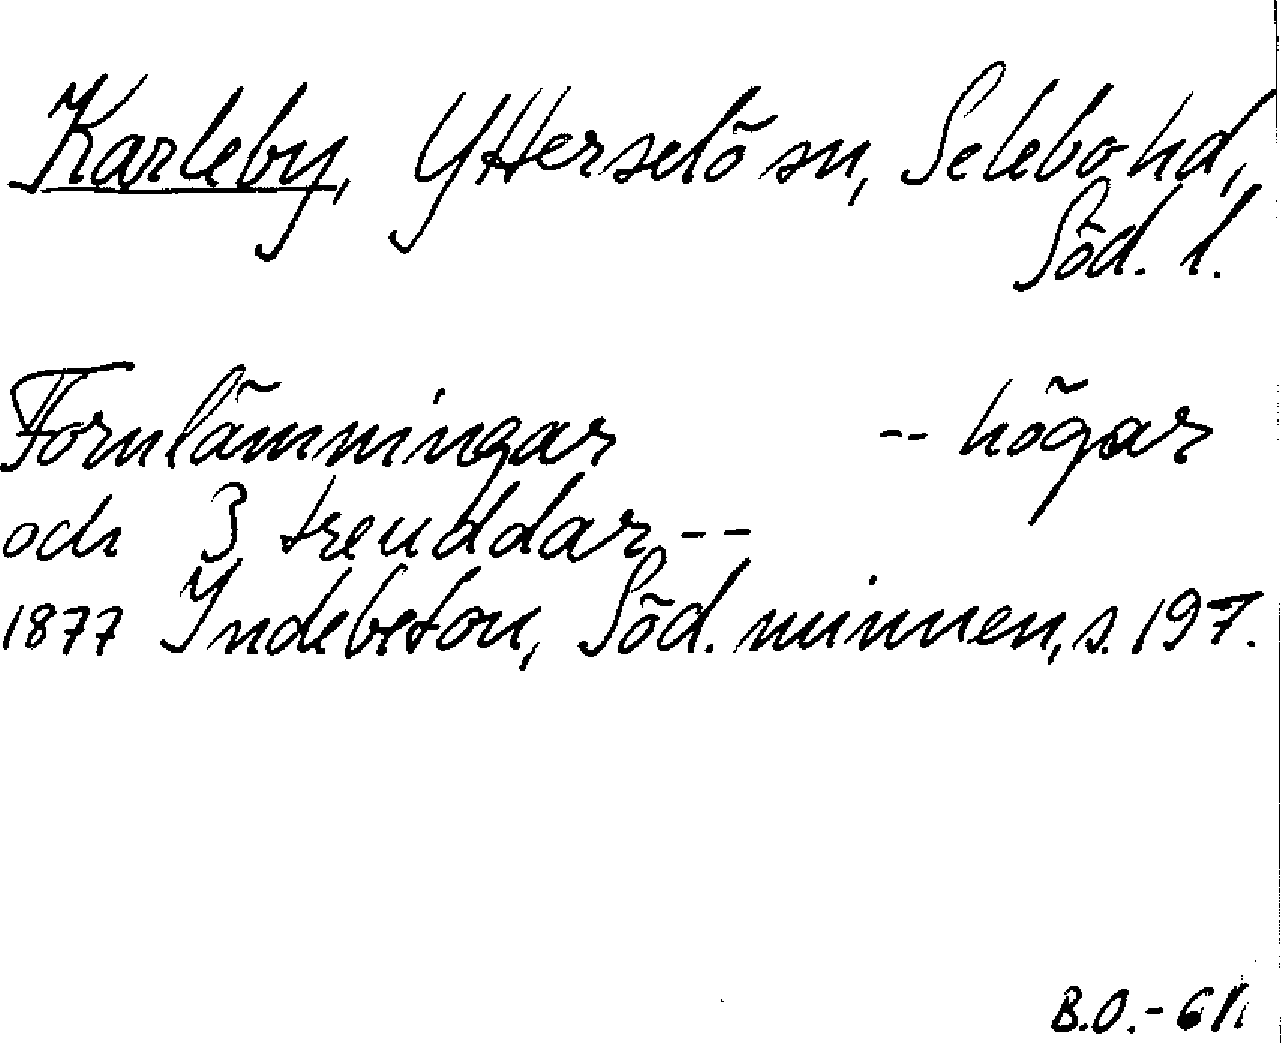 Karleby, Ytterselö sn, Selebo hd,
Söd. l.
Fornlämningar -- högar
och 3 treuddar --
1877 Indebetou, Söd. minnen, s. 197.
B.O.-61